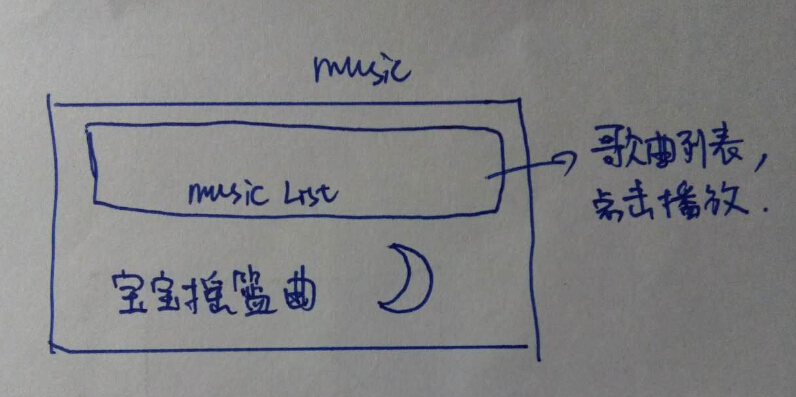 music
music List
歌曲列表，
点击播放.
宝宝摇篮曲